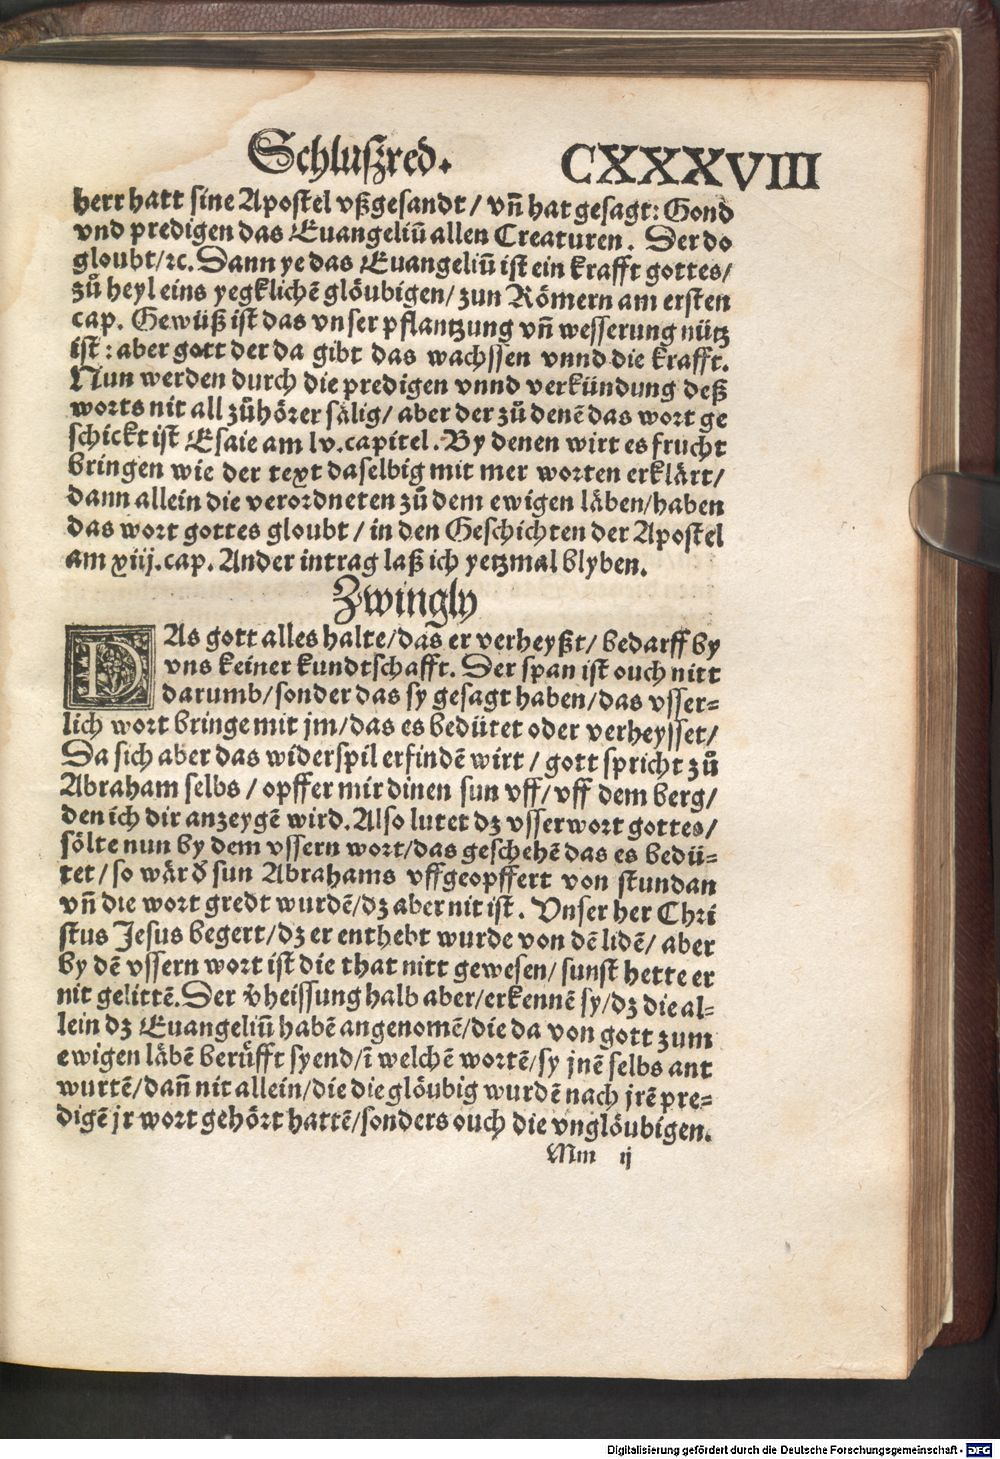 Schluſzred. CXXXVIII
herr hatt ſine Apoſtel vßgeſandt / vñ hat geſagt: Gond
vnd predigen das Euangeliū allen Creaturen. Der do
gloubt/ꝛc. Dann ye das Euangeliū iſt ein krafft gottes/
zů heyl eins yegklichē glöubigen/ zun Römern am erſten
cap. Gewüß iſt das vnſer pflantzung vñ weſſerung nütz
iſt: aber gott der da gibt das wachſſen vnnd die krafft.
Nun werden durch die predigen vnnd verkündung deß
worts nit all zůhörer ſälig/ aber der zů denē das wort ge
ſchickt iſt Eſaie am lv. capitel. By denen wirt es frucht
bringen wie der text daſelbig mit mer worten erklärt/
dann allein die verordneten zů dem ewigen läben/haben
das wort gottes gloubt / in den Geſchichten der Apoſtel
am xiij. cap. Ander intrag laß ich yetzmal blyben.
Zwingly
DAs gott alles halte/das er verheyßt/ bedarff by
vns keiner kundtſchafft. Der ſpan iſt ouch nitt
darumb/ſonder das ſy geſagt haben/das vſſer-
lich wort bringe mit jm/das es bedütet oder verheyſſet/
Da ſich aber das widerſpil erfindē wirt / gott ſpricht zů
Abraham ſelbs / opffer mir dinen ſun vff/vff dem berg/
den ich dir anzeygē wird. Alſo lutet dz vſſer wort gottes/
ſölte nun by dem vſſern wort/das geſchehē das es bedü-
tet/ ſo wär d̕ ſun Abrahams vffgeopffert von ſtundan
vñ die wort gredt wurdē/dz aber nit iſt. Vnſer her Chri
ſtus Jeſus begert/dz er enthebt wurde von dē lidē/ aber
by dē vſſern wort iſt die that nitt geweſen/ ſunſt hette er
nit gelittē. Der v̕heiſſung halb aber/erkennē ſy/dz die al-
lein dz Euangeliū habē angenomē/die da von gott zum
ewigen läbē berüfft ſyend/ī welchē wortē/ſy jnē ſelbs ant
wurtē/dañ nit allein/die die glöubig wurdē nach jrē pre-
digē jr wort gehört hattē/ſonders ouch die vnglöubigen.
Mm ij
Digitalisierung gefördert durch die Deutsche Forschungsgemeinschaft - DFG